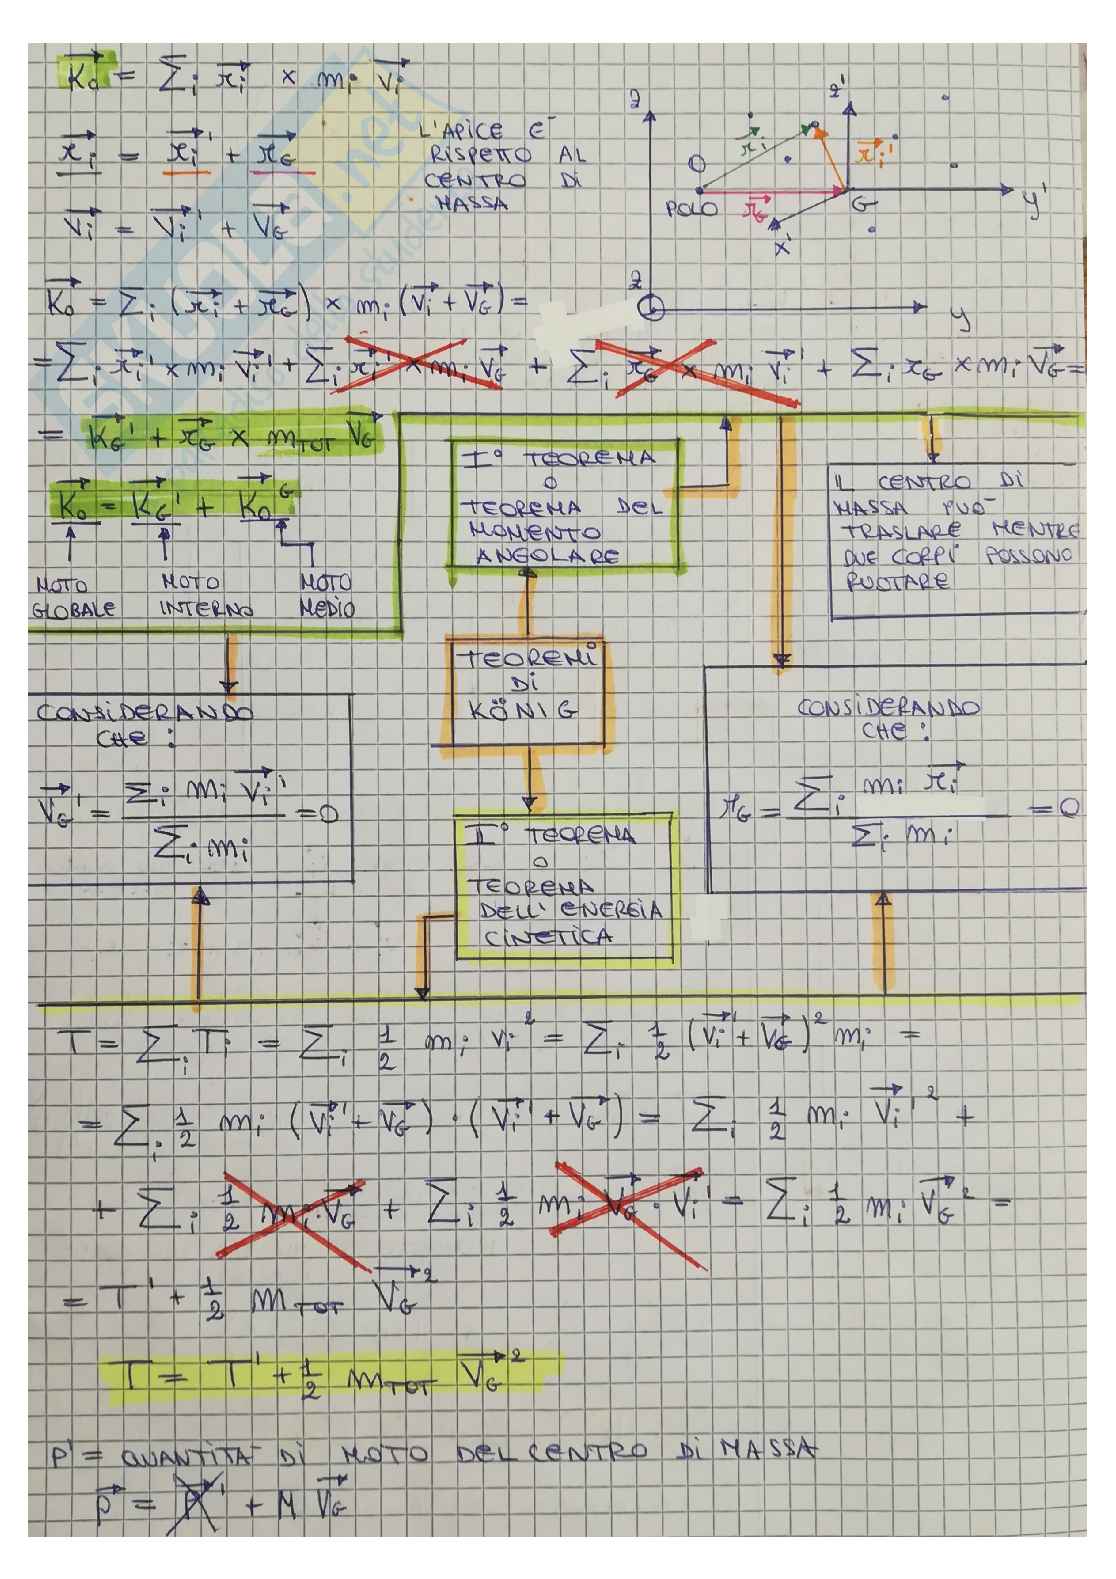 K₀ = Σᵢ rᵢ × mᵢ Vᵢ
rᵢ = rᵢ' + r_G
Vᵢ = Vᵢ' + V_G
L'APICE E`
RISPETTO AL
CENTRO DI
MASSA
z
z'
rᵢ
rᵢ'
O
POLO
r_G
G
y'
x'
z
y
K₀ = Σᵢ (rᵢ + r_G) × mᵢ (Vᵢ + V_G) =
= Σᵢ rᵢ' × mᵢ Vᵢ' + Σᵢ rᵢ' × mᵢ V_G + Σᵢ r_G × mᵢ Vᵢ' + Σᵢ r_G × mᵢ V_G =
= K_G' + r_G × m_TOT V_G
K₀ = K_G' + K₀^G
MOTO
GLOBALE
MOTO
INTERNO
MOTO
MEDIO
I° TEOREMA
O
TEOREMA DEL
MOMENTO
ANGOLARE
IL CENTRO DI
MASSA PUO`
TRASLARE MENTRE
DUE CORPI POSSONO
RUOTARE
TEOREMI
DI
KÖNIG
CONSIDERANDO
CHE:
V_G' = Σᵢ mᵢ Vᵢ' / Σᵢ mᵢ = 0
CONSIDERANDO
CHE:
r_G = Σᵢ mᵢ rᵢ / Σᵢ mᵢ = 0
II° TEOREMA
O
TEOREMA
DELL'ENERGIA
CINETICA
T = Σᵢ Tᵢ = Σᵢ 1/2 mᵢ vᵢ² = Σᵢ 1/2 (Vᵢ' + V_G)² mᵢ =
= Σᵢ 1/2 mᵢ (Vᵢ' + V_G) · (Vᵢ' + V_G) = Σᵢ 1/2 mᵢ Vᵢ'² +
+ Σᵢ 1/2 mᵢ · V_G + Σᵢ 1/2 mᵢ V_G · Vᵢ' = Σᵢ 1/2 mᵢ V_G² =
= T' + 1/2 m_TOT V_G²
T = T' + 1/2 m_TOT V_G²
P' = QUANTITA` DI MOTO DEL CENTRO DI MASSA
P = P' + M V_G